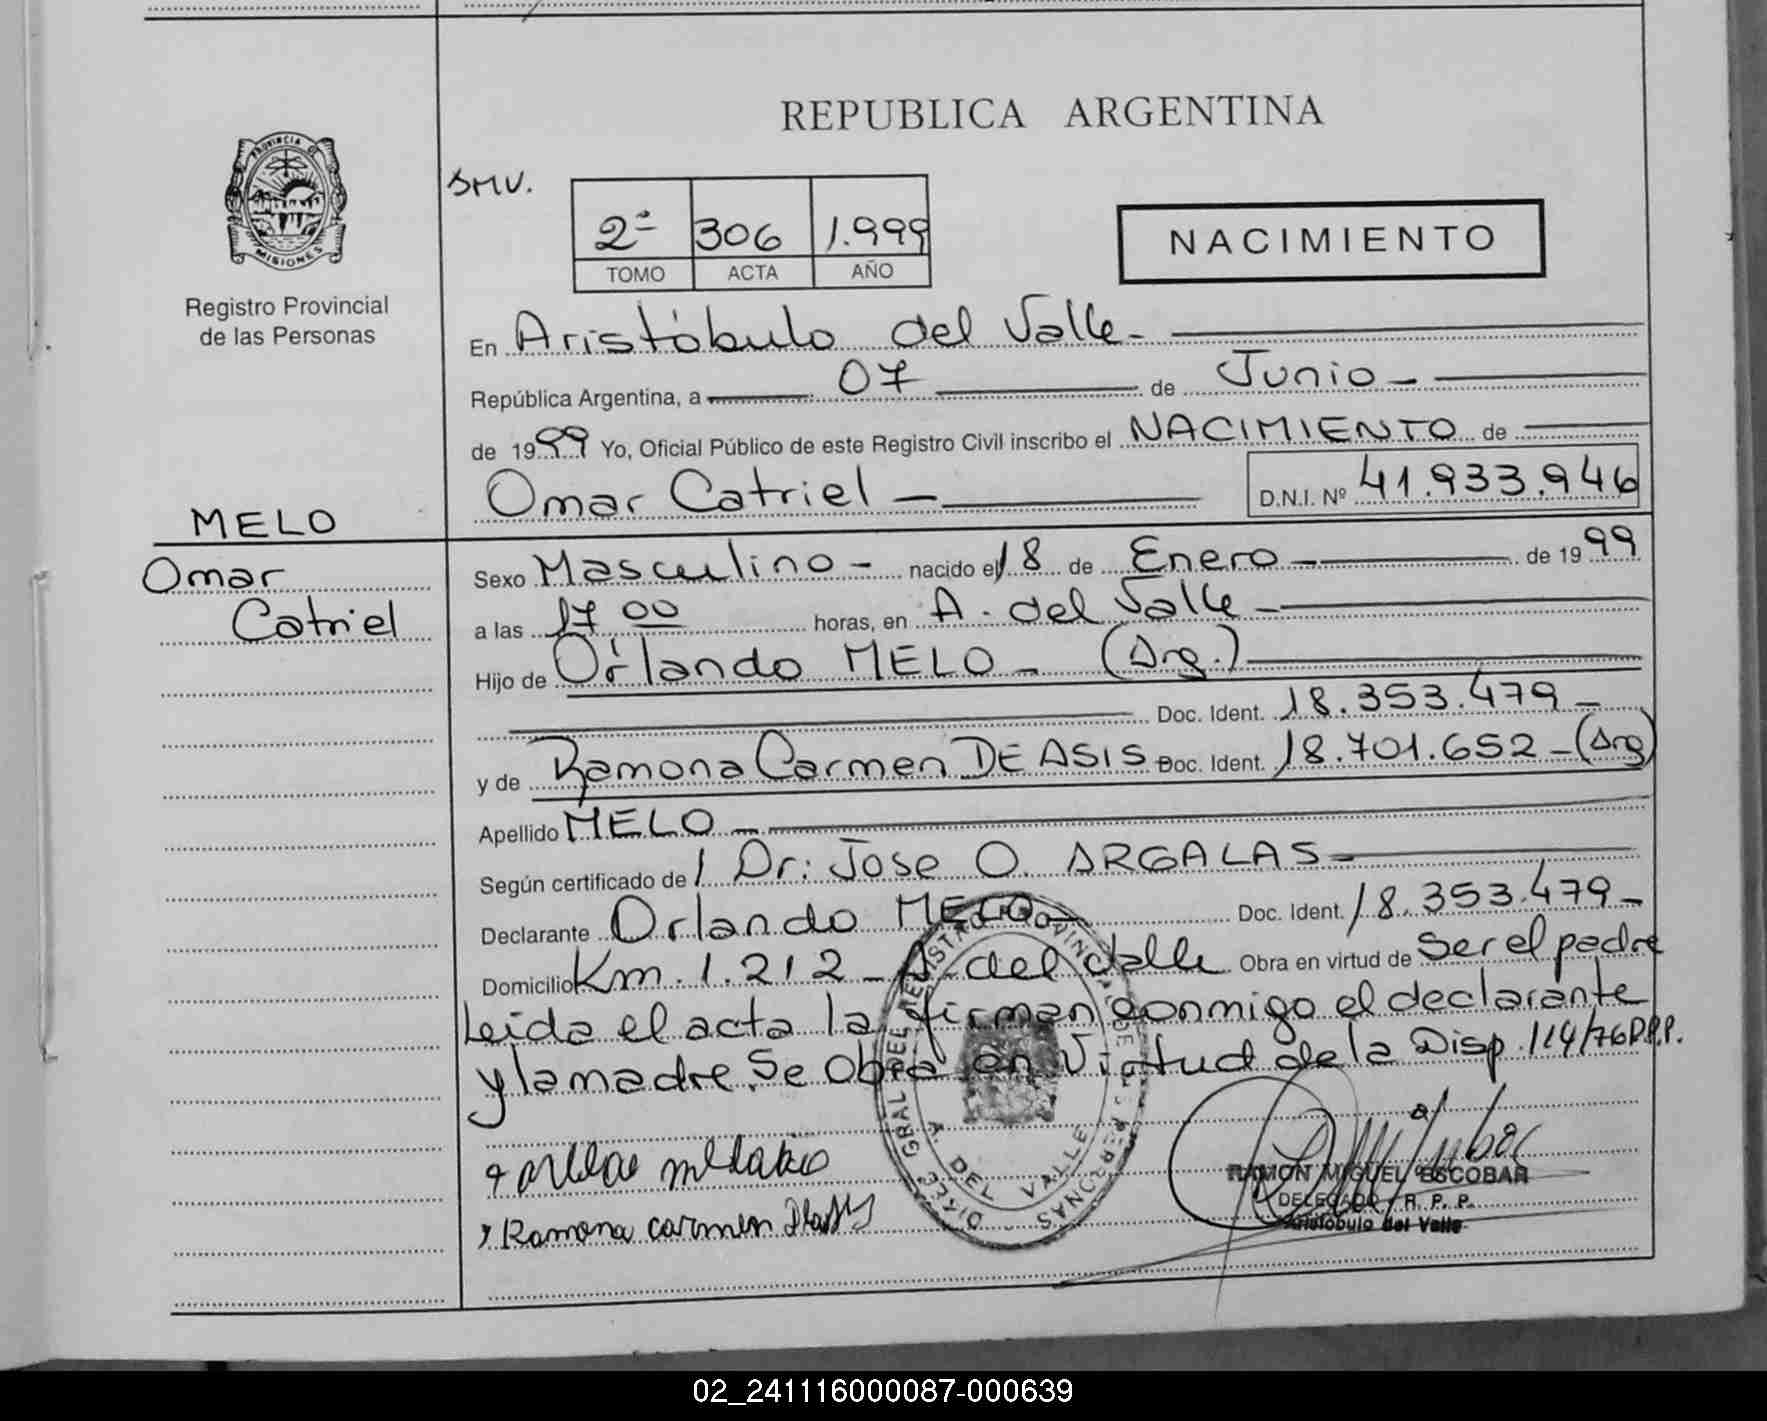 REPUBLICA ARGENTINA
PROVINCIA DE
MISIONES
Registro Provincial
de las Personas
SMV.
2ª 306 1.999
TOMO ACTA AÑO
NACIMIENTO
En Aristóbulo del Valle-
República Argentina, a 07 de Junio -
de 1999 Yo, Oficial Público de este Registro Civil inscribo el NACIMIENTO de
Omar Catriel - D.N.I. Nº 41.933.946
MELO
Omar
Catriel
Sexo Masculino - nacido el 18 de Enero - de 1999
a las 17 00 horas, en A. del Valle -
Hijo de Orlando MELO - (Arg.)
Doc. Ident. 18.353.479 -
y de Ramona Carmen DE ASIS Doc. Ident. 18.701.652 - (Arg)
Apellido MELO -
Según certificado de / Dr: Jose O. ARGALAS -
Declarante Orlando MELO - Doc. Ident. 18.353.479 -
Domicilio Km. 1.212 - A. del Valle Obra en virtud de Ser el padre
Leida el acta la firman conmigo el declarante
y la madre. Se Obra en Virtud de la Disp. 114/76 R.P.P.
DIREC. GRAL DEL REGISTRO PROVINCIAL DE LAS PERSONAS
A. DEL VALLE
Ramona carmen
RAMON MIGUEL ESCOBAR
DELEGADO R. P. P.
Aristóbulo del Valle
02_241116000087-000639